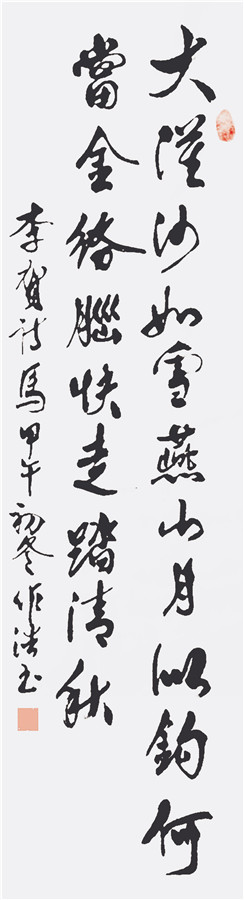 大漠沙如雪燕山月似鈎何
當金絡腦快走踏清秋
李賀詩馬甲午初冬作浩书